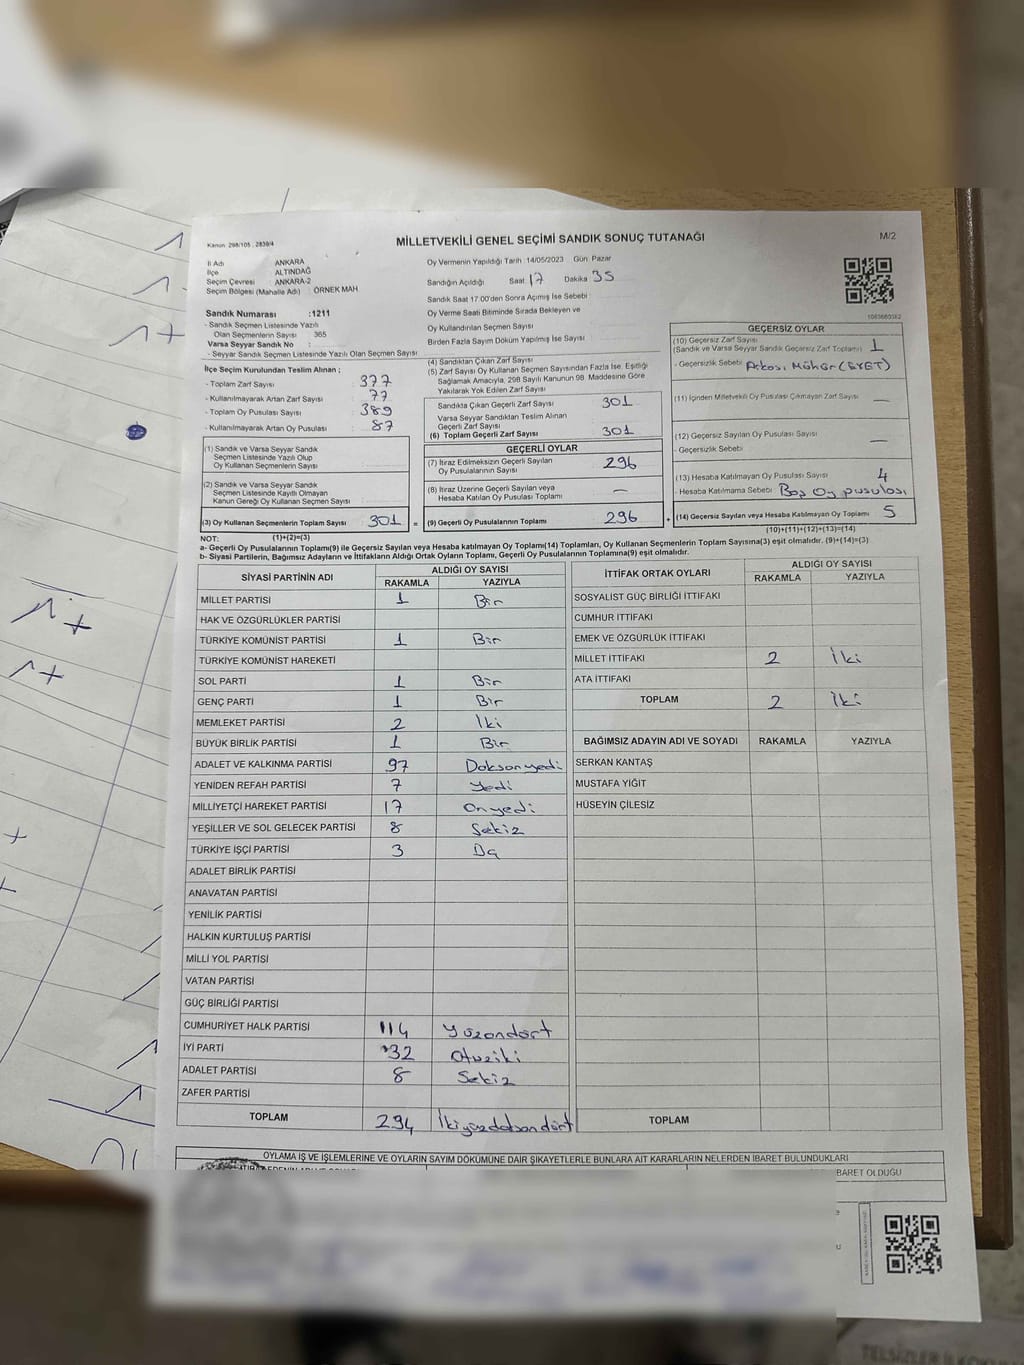 Kanun: 298/105 , 2839/4
MİLLETVEKİLİ GENEL SEÇİMİ SANDIK SONUÇ TUTANAĞI
M/2
İl Adı ANKARA
İlçe ALTINDAĞ
Seçim Çevresi ANKARA-2
Seçim Bölgesi (Mahalle Adı) : ÖRNEK MAH.
Oy Vermenin Yapıldığı Tarih :14/05/2023 Gün Pazar
Sandığın Açıldığı Saat 17 Dakika 35
Sandık Saat 17.00'den Sonra Açılmış İse Sebebi :
Oy Verme Saati Bitiminde Sırada Bekleyen ve
Oy Kullandırılan Seçmen Sayısı
Birden Fazla Sayım Döküm Yapılmış İse Sayısı :
Sandık Numarası :1211
- Sandık Seçmen Listesinde Yazılı
Olan Seçmenlerin Sayısı 365
Varsa Seyyar Sandık No :
- Seyyar Sandık Seçmen Listesinde Yazılı Olan Seçmen Sayısı
İlçe Seçim Kurulundan Teslim Alınan ;
- Toplam Zarf Sayısı : 377
- Kullanılmayarak Artan Zarf Sayısı : 77
- Toplam Oy Pusulası Sayısı : 389
- Kullanılmayarak Artan Oy Pusulası : 87
(1) Sandık ve Varsa Seyyar Sandık
Seçmen Listesinde Yazılı Olup
Oy Kullanan Seçmenlerin Sayısı
(2) Sandık ve Varsa Seyyar Sandık
Seçmen Listesinde Kayıtlı Olmayan
Kanun Gereği Oy Kullanan Seçmen Sayısı
(3) Oy Kullanan Seçmenlerin Toplam Sayısı 301 =
(1)+(2)=(3)
(4) Sandıktan Çıkan Zarf Sayısı
(5) Zarf Sayısı Oy Kullanan Seçmen Sayısından Fazla İse, Eşitliği
Sağlamak Amacıyla, 298 Sayılı Kanunun 98. Maddesine Göre
Yakılarak Yok Edilen Zarf Sayısı
Sandıkta Çıkan Geçerli Zarf Sayısı 301
Varsa Seyyar Sandıktan Teslim Alınan
Geçerli Zarf Sayısı
(6) Toplam Geçerli Zarf Sayısı 301
GEÇERLİ OYLAR
(7) İtiraz Edilmeksizin Geçerli Sayılan
Oy Pusulalarının Sayısı 296
(8) İtiraz Üzerine Geçerli Sayılan veya
Hesaba Katılan Oy Pusulası Toplamı —
(9) Geçerli Oy Pusulalarının Toplamı 296 +
GEÇERSİZ OYLAR
(10) Geçersiz Zarf Sayısı
(Sandık ve Varsa Seyyar Sandık Geçersiz Zarf Toplamı) 1
- Geçersizlik Sebebi : Arkası Mühür (EVET)
(11) İçinden Milletvekili Oy Pusulası Çıkmayan Zarf Sayısı —
(12) Geçersiz Sayılan Oy Pusulası Sayısı —
- Geçersizlik Sebebi :
(13) Hesaba Katılmayan Oy Pusulası Sayısı 4
- Hesaba Katılmama Sebebi : Boş Oy pusulası
(14) Geçersiz Sayılan veya Hesaba Katılmayan Oy Toplamı 5
(10)+(11)+(12)+(13)=(14)
NOT:
a- Geçerli Oy Pusulalarının Toplamı(9) ile Geçersiz Sayılan veya Hesaba katılmayan Oy Toplamı(14) Toplamları, Oy Kullanan Seçmenlerin Toplam Sayısına(3) eşit olmalıdır. (9)+(14)=(3)
b- Siyasi Partilerin, Bağımsız Adayların ve İttifakların Aldığı Ortak Oyların Toplamı, Geçerli Oy Pusulalarının Toplamına(9) eşit olmalıdır.
SİYASİ PARTİNİN ADI ALDIĞI OY SAYISI
RAKAMLA YAZIYLA
MİLLET PARTİSİ 1 Bir
HAK VE ÖZGÜRLÜKLER PARTİSİ
TÜRKİYE KOMÜNİST PARTİSİ 1 Bir
TÜRKİYE KOMÜNİST HAREKETİ
SOL PARTİ 1 Bir
GENÇ PARTİ 1 Bir
MEMLEKET PARTİSİ 2 İki
BÜYÜK BİRLİK PARTİSİ 1 Bir
ADALET VE KALKINMA PARTİSİ 97 Doksanyedi
YENİDEN REFAH PARTİSİ 7 Yedi
MİLLİYETÇİ HAREKET PARTİSİ 17 Onyedi
YEŞİLLER VE SOL GELECEK PARTİSİ 8 Sekiz
TÜRKİYE İŞÇİ PARTİSİ 3
ADALET BİRLİK PARTİSİ
ANAVATAN PARTİSİ
YENİLİK PARTİSİ
HALKIN KURTULUŞ PARTİSİ
MİLLİ YOL PARTİSİ
VATAN PARTİSİ
GÜÇ BİRLİĞİ PARTİSİ
CUMHURİYET HALK PARTİSİ 114 Yüzondört
İYİ PARTİ 32 Otuziki
ADALET PARTİSİ 8 Sekiz
ZAFER PARTİSİ
TOPLAM 294 İkiyüzdoksandört
İTTİFAK ORTAK OYLARI ALDIĞI OY SAYISI
RAKAMLA YAZIYLA
SOSYALİST GÜÇ BİRLİĞİ İTTİFAKI
CUMHUR İTTİFAKI
EMEK VE ÖZGÜRLÜK İTTİFAKI
MİLLET İTTİFAKI 2 İki
ATA İTTİFAKI
TOPLAM 2 İki
BAĞIMSIZ ADAYIN ADI VE SOYADI RAKAMLA YAZIYLA
SERKAN KANTAŞ
MUSTAFA YİĞİT
HÜSEYİN ÇİLESİZ
TOPLAM
OYLAMA İŞ VE İŞLEMLERİNE VE OYLARIN SAYIM DÖKÜMÜNE DAİR ŞİKAYETLERLE BUNLARA AİT KARARLARIN NELERDEN İBARET BULUNDUKLARI
BARET OLDUĞU